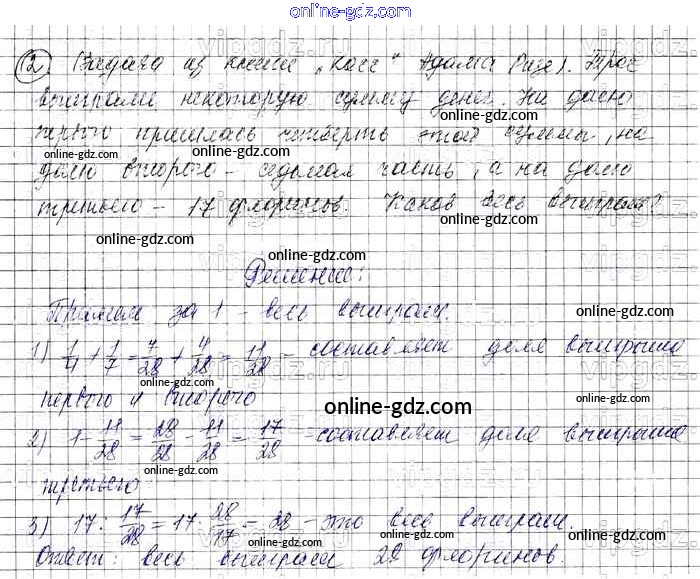 online-gdz.com
2. Задача из книги „Косс“ Адама Ризе). Трое
выиграли некоторую сумму денег. На долю
первого пришлась четверть этой суммы, на
долю второго - седьмая часть, а на долю
третьего - 17 флоринов. Каков весь выигрыш?
Решение:
Примем за 1 - весь выигрыш.
1) 1/4 + 1/7 = 7/28 + 4/28 = 11/28 - составляет доля выигрыша
первого и второго
online-gdz.com
2) 1 - 11/28 = 28/28 - 11/28 = 17/28 - составляет доля выигрыша
третьего
3) 17 : 17/28 = 17 · 28/17 = 28 - это весь выигрыш.
Ответ: весь выигрыш 28 флоринов.